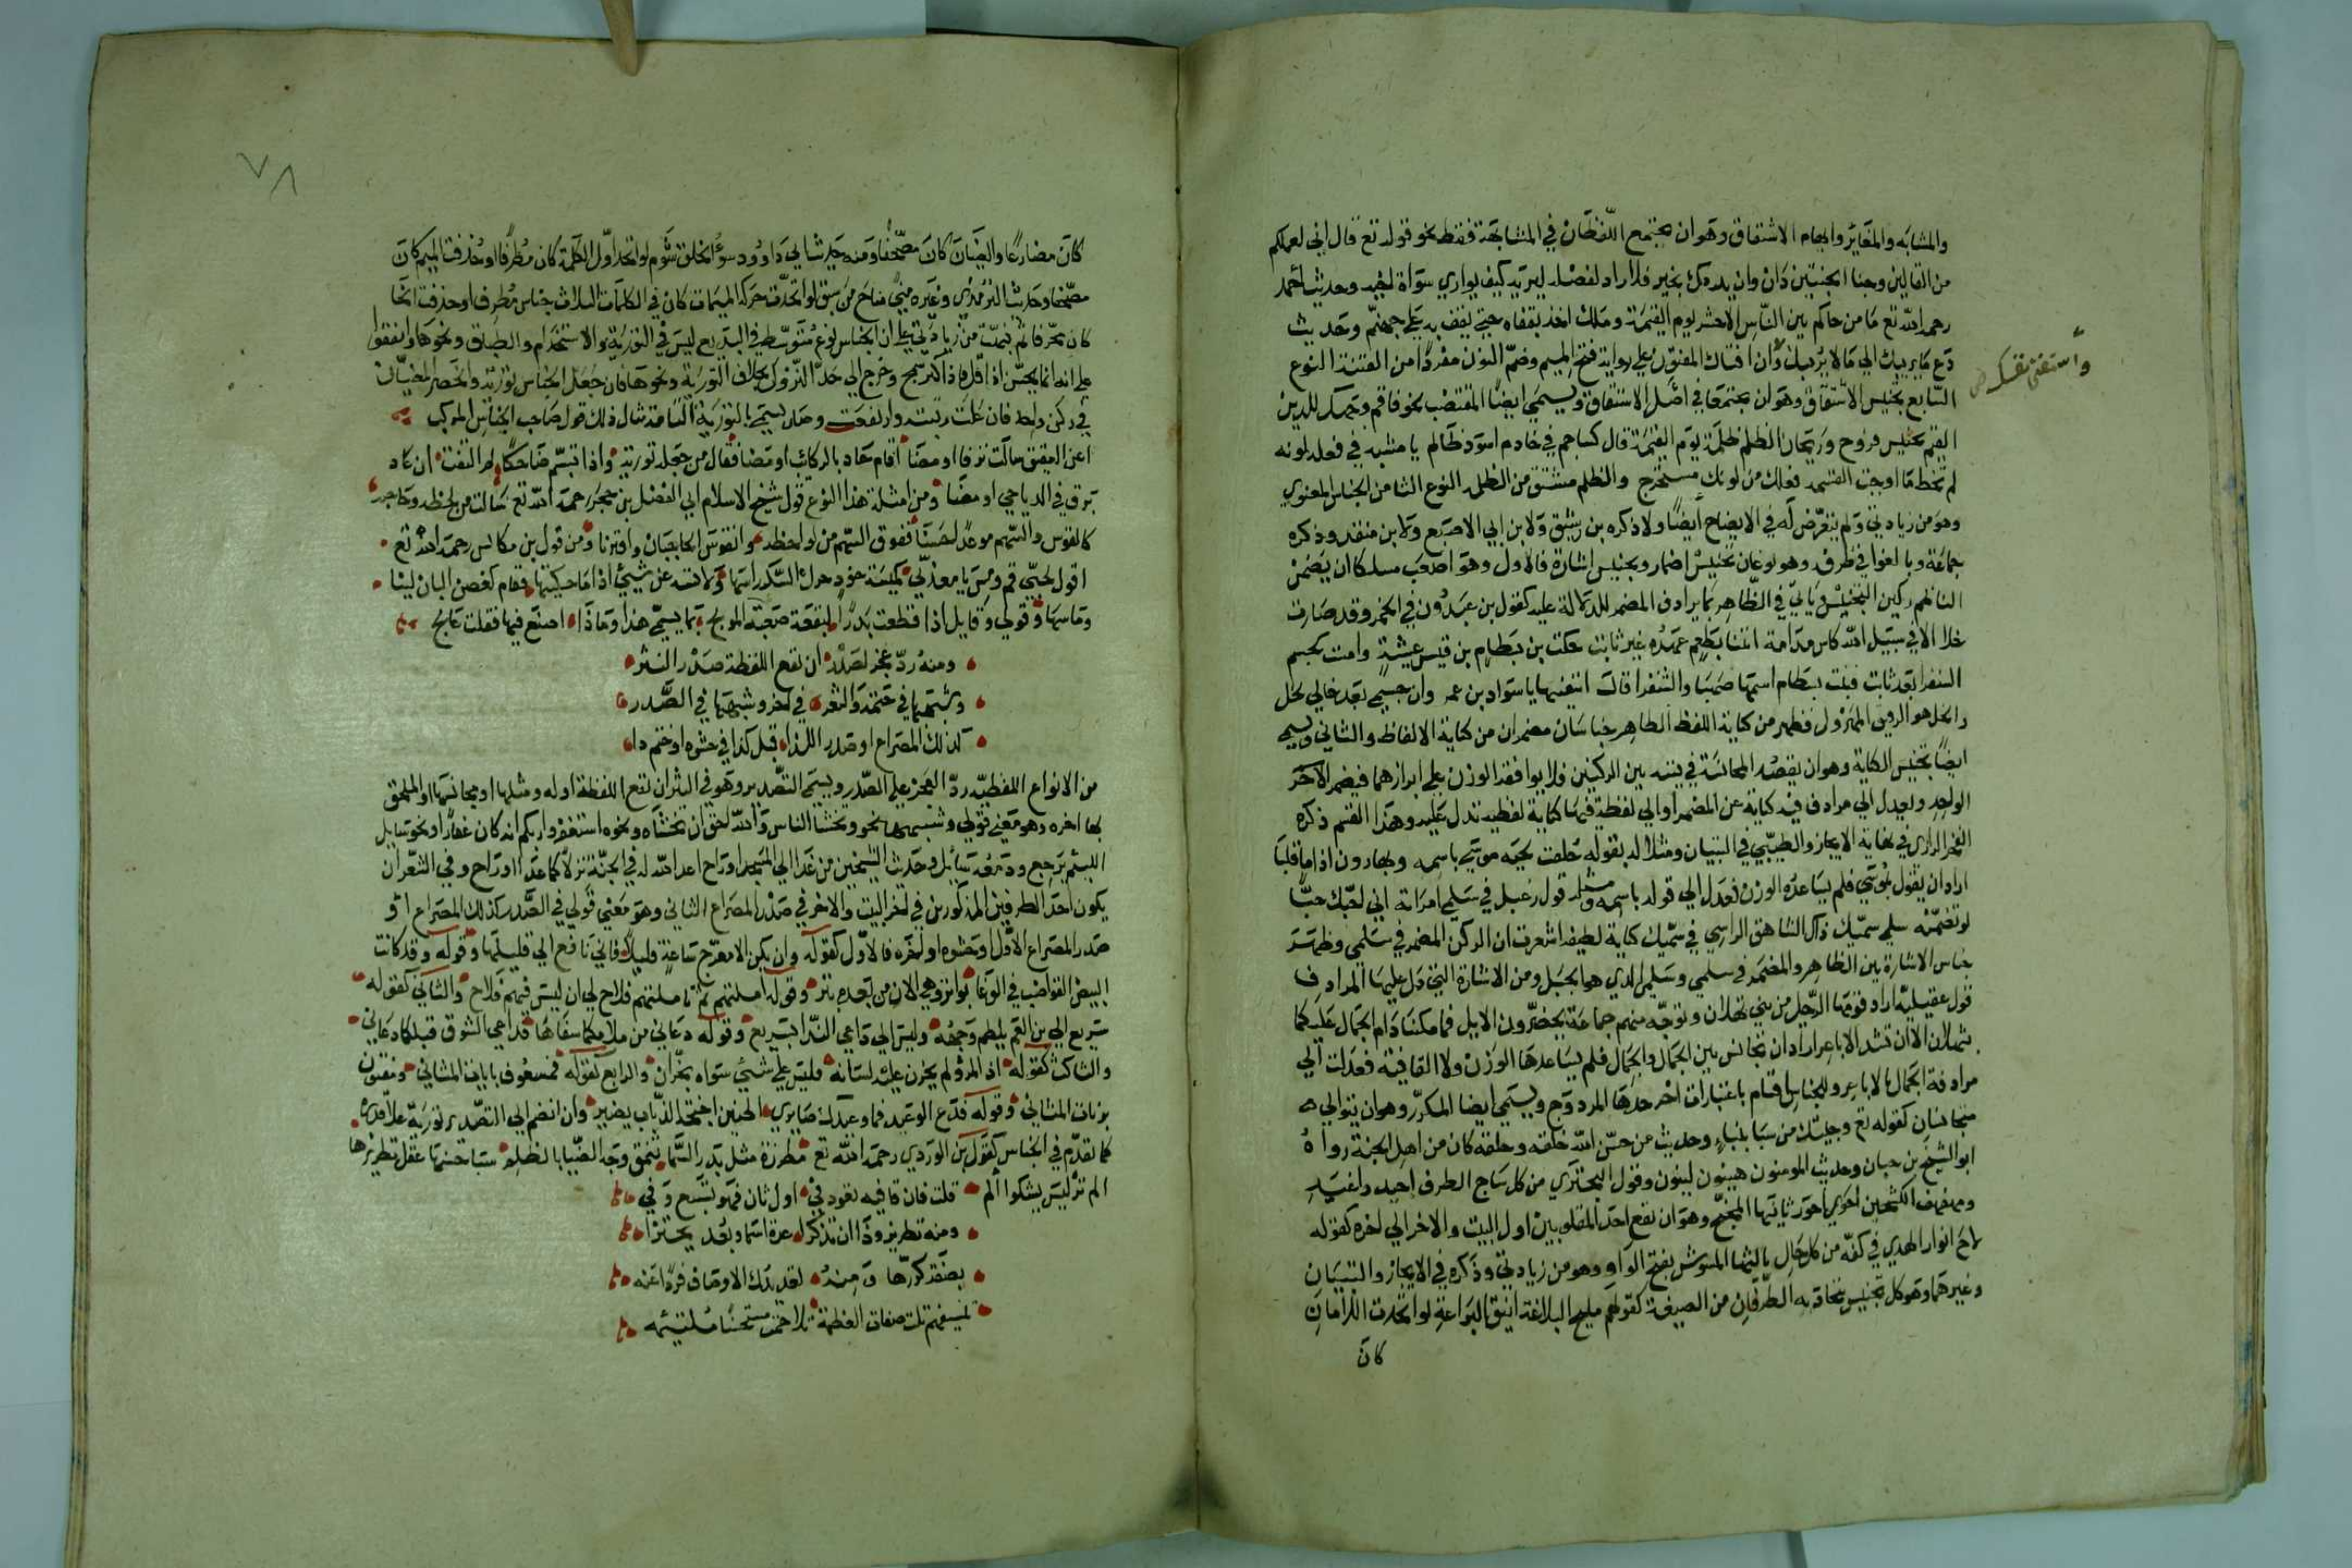 والمشابه والمغاير وايهام الاشتقاق وهو ان يجتمع اللفظان في المشابهة فقط نحو قوله تع قال اني لعملكم
من القالين وجنا الجنتين دان وان يردك بخير فلا راد لفضله ليريه كيف يواري سواة اخيه وحديث احمد
رحمه الله تع ما من حاكم بين الناس الا حشر يوم القيمة وملك اخذ بقفاه حتي يقف به علي جهنم وحديث
دع ما يريبك الي ما لا يريبك وان افتاك المفتون علي رواية فتح الميم وضم النون مفردا من الفتنة النوع
واستفت نفسك
السابع تجنيس الاشتقاق وهو ان يجتمعا في اصل الاشتقاق ويسمي ايضا المقتضب نحو فاقم وجهك للدين
القيم تجنيس فروح وريحان الظلم ظلمة يوم القيمة قال كشاجم في خادم اسود ظالم يا مشبه في فعله لونه
لم تخط ما اوجبت القسمه فعلك من لونك مستخرج والظلم مشتق من الظلمه النوع الثامن الجناس المعنوي
وهو من زيادتي ولم يتعرض له في الايضاح ايضا ولا ذكره بن رشيق ولا بن ابي الاصبع ولا بن منقذ وذكره
جماعة وبالغوا في طرق وهو نوعان تجنيس اضمار وتجنيس اشارة فالاول وهو اصعب مسلكا ان يضمر
الناظم ركين التجنيس وياتي في الظاهر بما يرادف المضمر للدلالة عليه كقول بن عبدون في الخمر وقد صارت
خلا الا في سبيل الله كاس مدامة اتتنا بطعم عهده غير ثابت حكت بن بسطام بن قيس عشية وامست كجسم
الشنفرا بعد ثابت فبنت بسطام اسمها صهبا والشنفرا قال اسقنيها يا سواد بن عمر وان جسمي بعد خالي لخل
والخل هو الرقيق المهزول فظهر من كناية اللفظ الظاهر جناسان مضمران من كناية الالفاظ والثاني ويسمي
ايضا تجنيس الكناية وهو ان يقصد المجانسة في بيته بين الركنين فلا يوافقه الوزن علي ابرازهما فيضمر الاخر
الواحد ويعدل الي مرادف فيه كناية عن المضمر او الي لفظة فيها كناية لفظيه تدل عليه وهذا القسم ذكره
الفخر الرازي في نهاية الايجاز والطيبي في التبيان ومثلا له بقوله حلقت لحيه موسي باسمه وبهارون اذا ما قلبا
اراد ان يقول بموسي فلم يساعده الوزن فعدل الي قوله باسمه ومثله قول دعبل في سلمي امراته اني احبك حبا
لو تضمنه سلمي سميك ذاك الشاهق الراسي في سميك كناية لطيفه اشعرت ان الركن المضمر في سلمي وظهر سر
جناس الاشارة بين الظاهر والمضمر في سلمي وسلمي الذي هو الجبل ومن الاشارة التي دل عليها المرادف
قول عقيلية اراد قومها الرحيل من بني ثهلان وتوجه منهم جماعة يحضرون الابل فما مكثنا دام الجمال عليكما
بثهلان الا ان تشد الاباعر ارادت ان تجانس بين الجمال والجمال فلم يساعدها الوزن ولا القافية فعدلت الي
مرادفة الجمال بالاباعر وللجناس اقسام باعتبارات اخر احدها المزدوج ويسمي ايضا المكرر وهو ان يتوالي
متجانسان كقوله تع وجئتك من سبا بنباء وحديث عن حسن الله خلقه وخلقه كان من اهل الجنة رواه
ابو الشيخ بن حبان وحديث المومنون هينون لينون وقول البحتري من كل ساجي الطرف اجيد اغيد
ومهفهف الكشحين احوي احور ثانيها المجنح وهو ان يقع احد المقلوبين اول البيت والاخر الي اخره كقوله
لاح انوار الهدي في كفه من كل حال ثالثها المشوش بفتح الواو وهو من زيادتي وذكره في الايجاز والتبيان
وغيرهما وهو كل تجنيس يتجاذبه الطرفان من الصيغة كقولهم مليح البلاغة انيق البراعة لو اتحدت اللامان
كان
٧٨
كان مضارعا والعينان كان مصحفا ومنه حديث ابي داوود سوء الخلق شوم لو اتحد اول الكلمة كان مطرفا او حذفت الميم كان
مصحفا وحديث الترمذي وغيره مني مناخ من سبق لو اتحدت حركة الميمات كان في الكلمات الثلاث جناس مطرف او حذفت الخا
كان محرفا ثم نبهت من زيادتي علي ان الجناس نوع متوسط في البديع ليس في التورية والاستخدام والطباق ونحوها واتفقوا
علي انه انما يحسن اذا قل فاذا كثر سمج وخرج الي حد النزول بخلاف التورية ونحوها فان جعل الجناس تورية وانحصر المعنيان
في ركن واحد فان علت رتبته وارتفعت وصار يسمي بالتورية التامة مثال ذلك قول صاحب الجناس المركب
اعن العقيق سالت برقا او مضا اقام حاد بالركائب او مضا فقال من جعله تورية واذا تبسم ضاحكا لم التفت ان عاد
برق في الدياجي او مضا ومن امثلة هذا النوع قول شيخ الاسلام ابي الفضل بن حجر رحمه الله تع سالت من لحظه وحاجبه
كالقوس والسهم موعدا حسنا ففوق السهم من لواحظه وانقوس الحاجبان واقترنا ومن قول بن مكانس رحمه الله تع
اقول لحبي قم ومس يا معذبي كميسة خود حرك السكر راسها ولا تسه عن شيئ اذا ما حكيتها فقام كغصن البان لينا
وماسها وقولي وقايل اذا قطعت بدرا لبقعة صعبة الموبج بما يسمي هذا وماذا اصنع فيها فقلت عالج
ومنه رد عجز لصدر ان تقع اللفظة صدر النثر
وشبهها في ختمه والشعر في اخر وشبهها في الصدر
كذلك المصراع او صدر اللذا قبل كذا في حشوه او ختم ذا
من الانواع اللفظيه رد العجز علي الصدر ويسمي التصدير وهو في النثر ان تقع اللفظة اوله ومثلها او مجانسها او الملحق
بها اخره وهو معني قولي وشبهها نحو وتخشا الناس والله احق ان تخشاه ونحوه استغفروا ربكم انه كان غفارا ونحو سايل
اللئيم يرجع ودمعه سائل وحديث الشيخين من غدا الي المسجد او راح اعد الله له في الجنة نزلا كلما غدا او راح وفي الشعر ان
يكون احد الطرفين المذكورين في اخر البيت والاخر في صدر المصراع الثاني وهو معني قولي في الصدر كذلك المصراع او
صدر المصراع الاول او حشوه او اخره فالاول كقوله وان لم يكن الا معرج ساعة قليلا فاني نافع الي قليلها وقوله وقد كانت
البيض القواضب في الوغا بواتر وهي الان من بعده بتر وقوله املتهم ثم تاملتهم فلاح لي ان ليس فيهم فلاح والثاني كقوله
سريع الي بن العم يلطم وجهه وليس الي داعي الندا بسريع وقوله دعاني من ملامكما سفاها فداعي الشوق قبلكما دعاني
والثالث كقوله اذ المرؤ لم يخزن عليه لسانه فليس علي شيئ سواه بخزان والرابع كقوله فمشغوف بايات المثاني ومفتون
برنات المثاني وقوله فدع الوعيد فما وعيدك ضايري اطنين اجنحة الذباب يضير وان انضم الي التصدير تورية علا قدره
كما تقدم في الجناس كقول بن الوردي رحمه الله تع مطرزة مثل بدر السما تنمق وجه الضيا بالظلم سبا حسنها عقل تطريزها
الم تر ليس يشكوا الم قلت فان قافيه تعود في اول ثان فهو تسبيع وفي
ومنه تطريز وذا ان تذكر عدة اسما وبعد يحتزا
بصفة كررها
تلاحمت مستحسنا ملتئمه